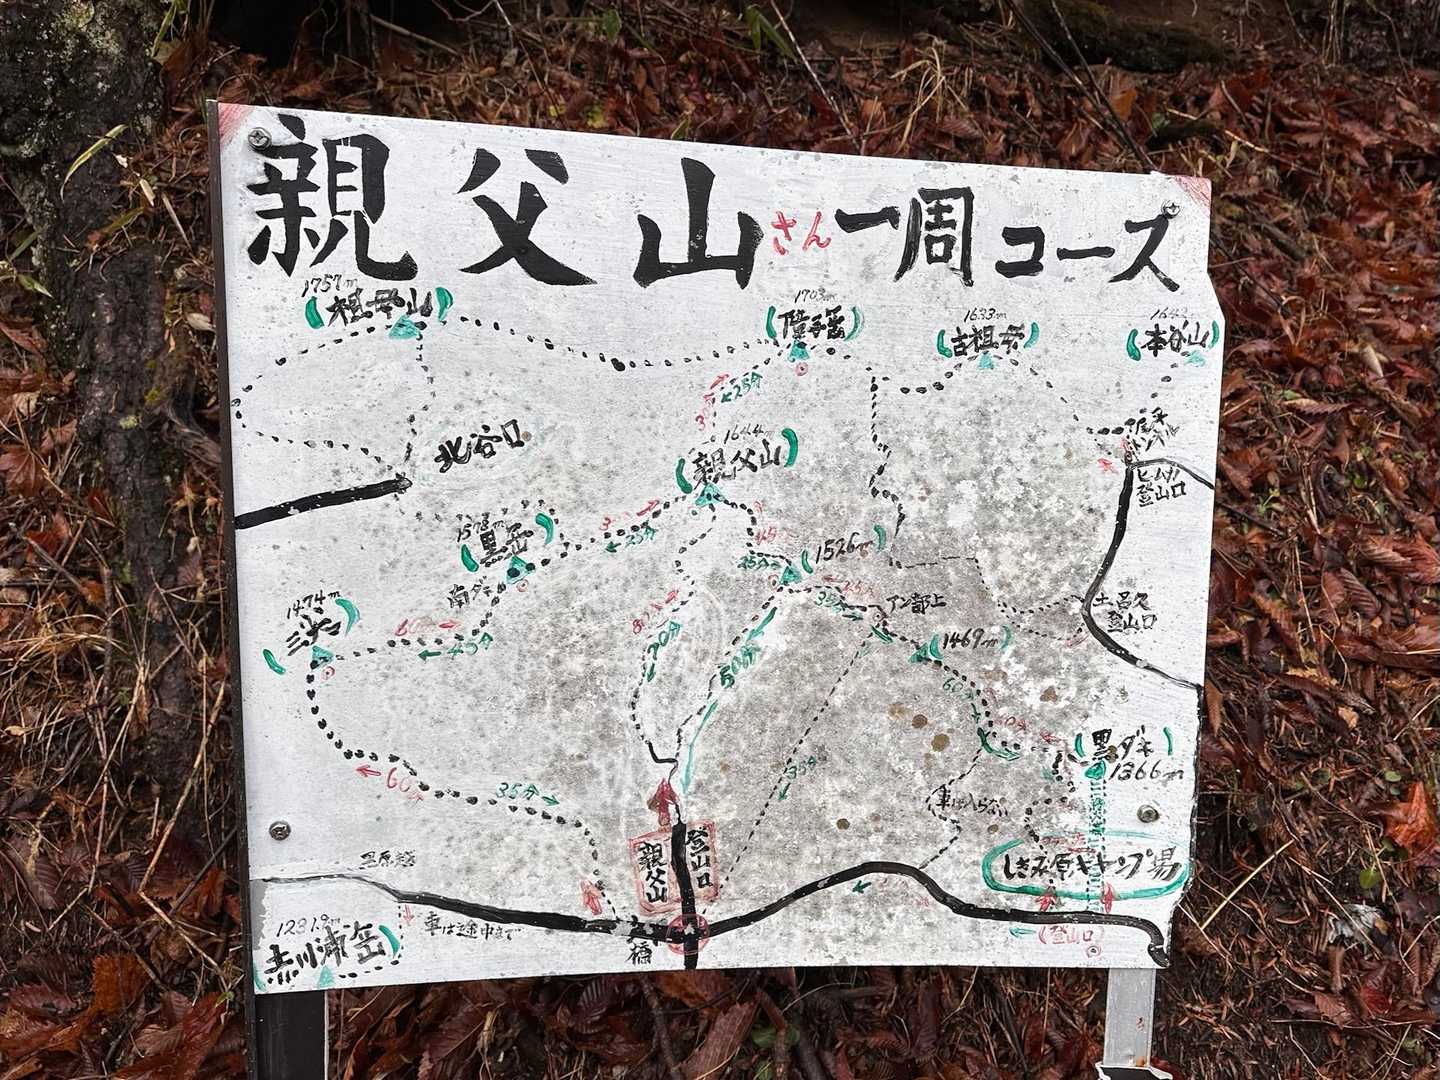 親父山さん一周コース
1757m
祖母山
1703m
障子岳
1633m
古祖母
1642m
本谷山
25分
北谷口
1644m
親父山
尾平
トンネル
登山口
1578m
黒岳
25分
1526m
南ダキ
1474m
60
45分
80分
70分
50分
35分
1469m
土呂久
登山口
60分
黒ダキ
1366m
60分
35分
35分
車は入らない
親父山
登山口
しきみ原キャンプ場
(登山口)
1231.9m
赤川浦岳
車は途中まで
橋